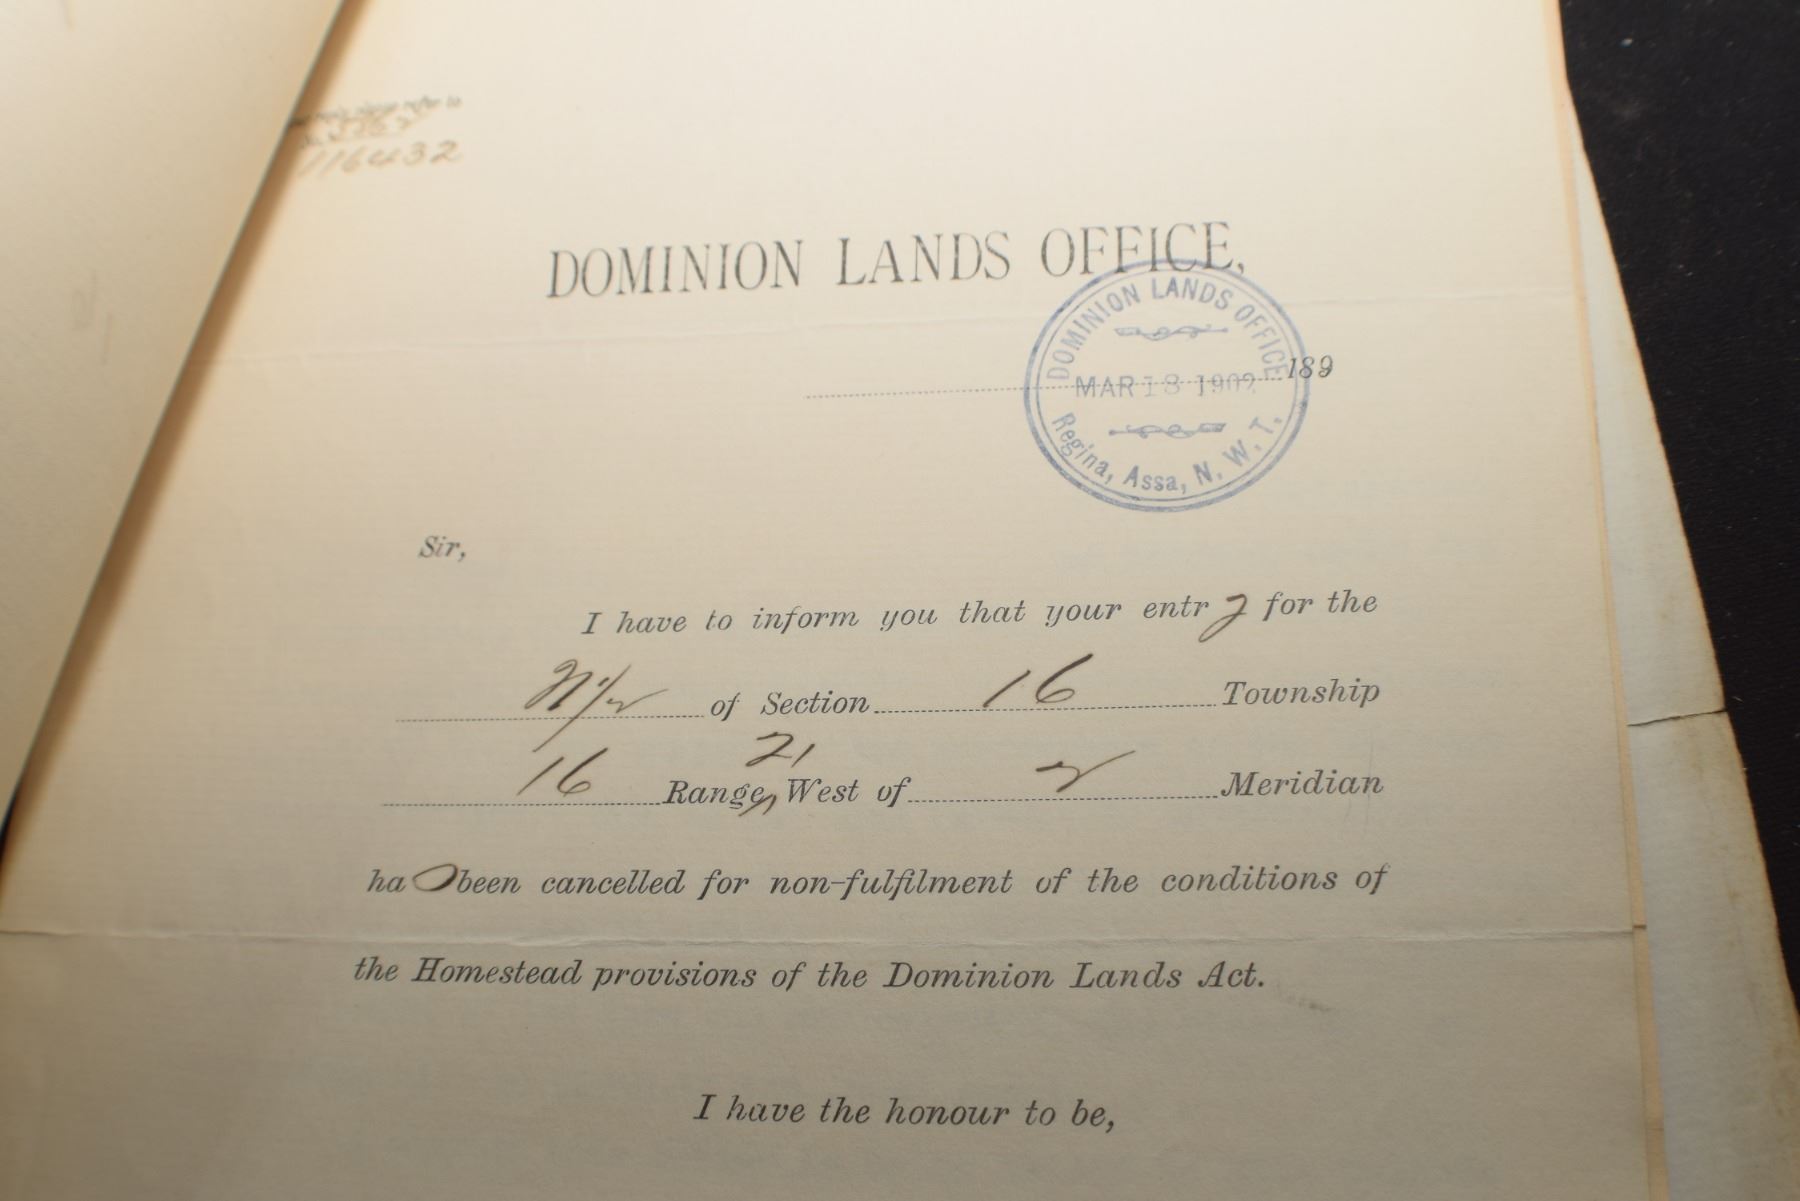 please refer to
No.
116432
DOMINION LANDS OFFICE,
DOMINION LANDS OFFICE
189
MAR 18 1902
Regina, Assa, N. W. T.
Sir,
I have to inform you that your entry for the
N 1/2 of Section 16 Township
16 Range, 21 West of 2 Meridian
ha been cancelled for non-fulfilment of the conditions of
the Homestead provisions of the Dominion Lands Act.
I have the honour to be,